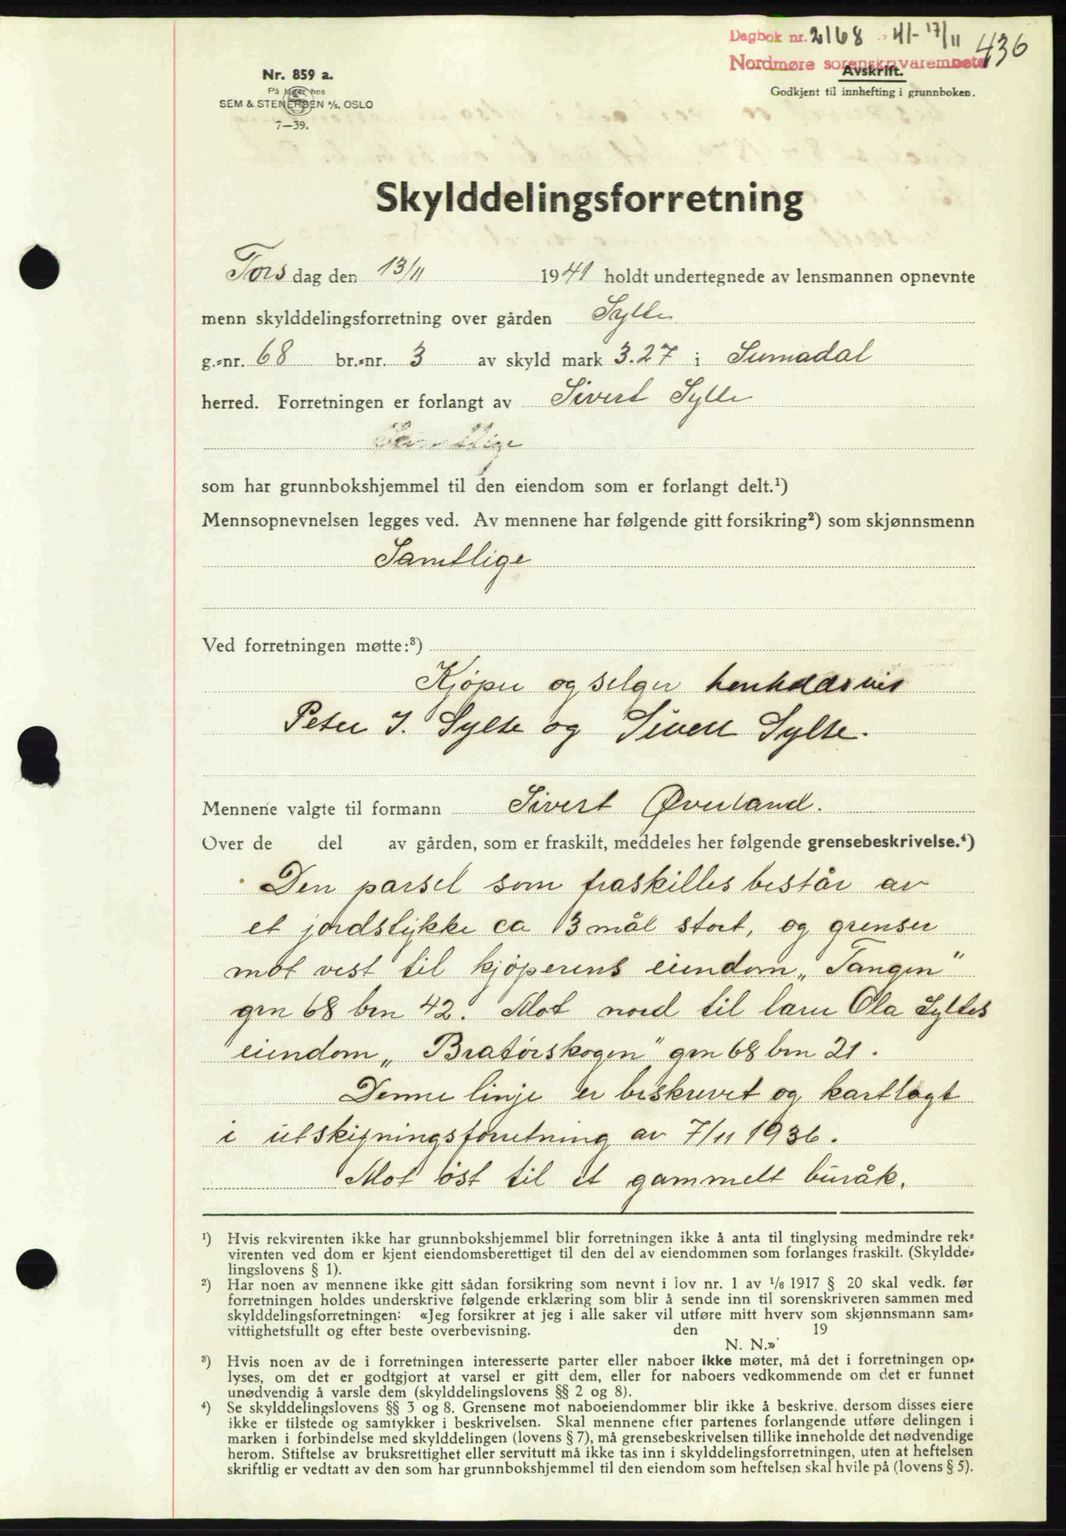 Dagbok nr. 2168 41-17/11
436
Nordmøre sorenskriverembete
Nr. 859 a.
På lager hos
SEM & STENERSEN A/S, OSLO
7—39.
Avskrift.
Godkjent til innhefting i grunnboken.
Skylddelingsforretning
Tors dag den 13/11 1941 holdt undertegnede av lensmannen opnevnte
menn skylddelingsforretning over gården Sylte
g.-nr. 68 br.-nr. 3 av skyld mark 3.27 i Surnadal
herred. Forretningen er forlangt av Sivert Sylte
Samtlige
som har grunnbokshjemmel til den eiendom som er forlangt delt.¹)
Mennsopnevnelsen legges ved. Av mennene har følgende gitt forsikring²) som skjønnsmenn
Samtlige
Ved forretningen møtte:³)
Kjøper og selger henholdsvis
Peter J. Sylte og Sivert Sylte.
Mennene valgte til formann Sivert Øverland.
Over de del av gården, som er fraskilt, meddeles her følgende grensebeskrivelse.⁴)
Den parsel som fraskilles består av
et jordstykke ca 3 mål stort, og grenser
mot vest til kjøperens eiendom „Tangen"
grn 68 brn 42. Mot nord til lærer Ola Syltes
eiendom „Bratørskogen" grn 68 brn 21.
Denne linje er beskrevet og kartlagt
i utskiftningsforretning av 7/11 1936.
Mot øst til et gammelt buråk.
¹) Hvis rekvirenten ikke har grunnbokshjemmel blir forretningen ikke å anta til tinglysing medmindre rek-
virenten ved dom er kjent eiendomsberettiget til den del av eiendommen som forlanges fraskilt. (Skyldde-
lingslovens § 1).
²) Har noen av mennene ikke gitt sådan forsikring som nevnt i lov nr. 1 av 1/6 1917 § 20 skal vedk. før
forretningen holdes underskrive følgende erklæring som blir å sende inn til sorenskriveren sammen med
skylddelingsforretningen: «Jeg forsikrer at jeg i alle saker vil utføre mitt hverv som skjønnsmann sam-
vittighetsfullt og efter beste overbevisning. den 19
N. N.»
³) Hvis noen av de i forretningen interesserte parter eller naboer ikke møter, må det i forretningen op-
lyses, om det er godtgjort at varsel er gitt dem, eller for naboers vedkommende om det er funnet
unødvendig å varsle dem (skylddelingslovens §§ 2 og 8).
⁴) Se skylddelingslovens §§ 3 og 8. Grensene mot naboeiendommer blir ikke å beskrive, dersom disses eiere
ikke er tilstede og samtykker i beskrivelsen. Skal mennene efter partenes forlangende utføre delingen i
marken i forbindelse med skylddelingen (lovens § 7), må grensebeskrivelsen tillike inneholde det nødvendige
herom. Stiftelse av bruksrettighet eller servitutt må ikke tas inn i skylddelingsforretningen, uten at heftelsen
skriftlig er vedtatt av den som har grunnbokshjemmel til den eiendom som heftelsen skal hvile på (lovens § 5).